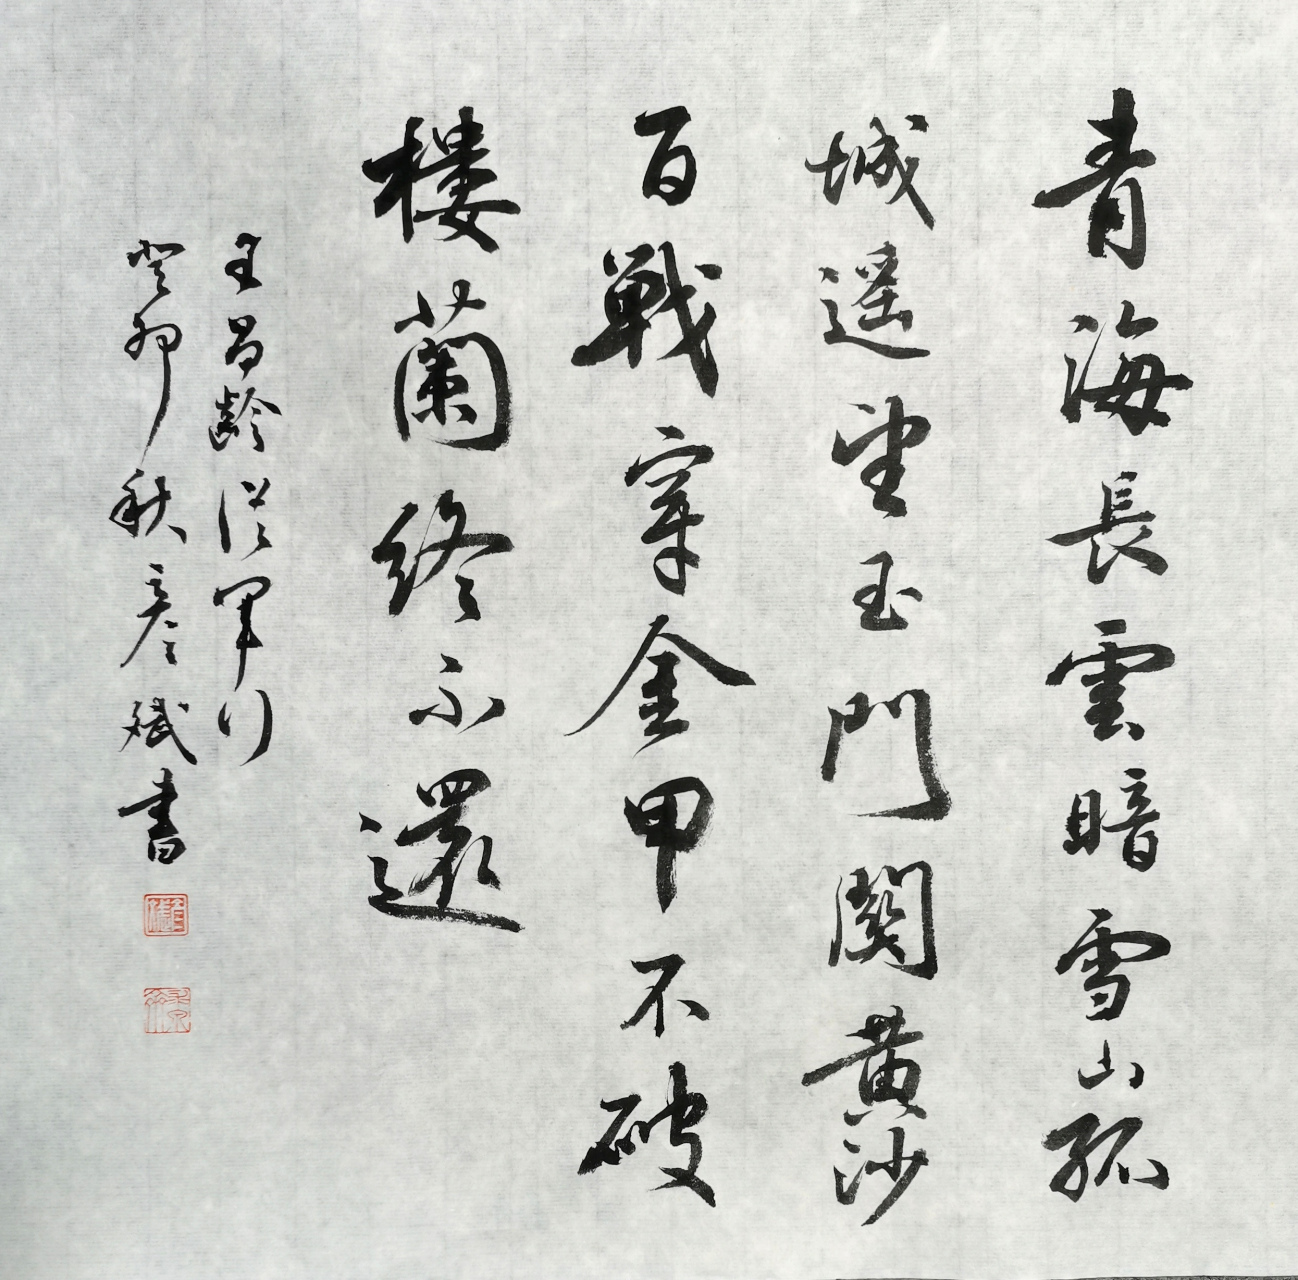 青海長雲暗雪山孤
城遥望玉門関黄沙
百戦穿金甲不破
楼蘭終不還
王昌齡從軍行
癸卯秋彦斌書